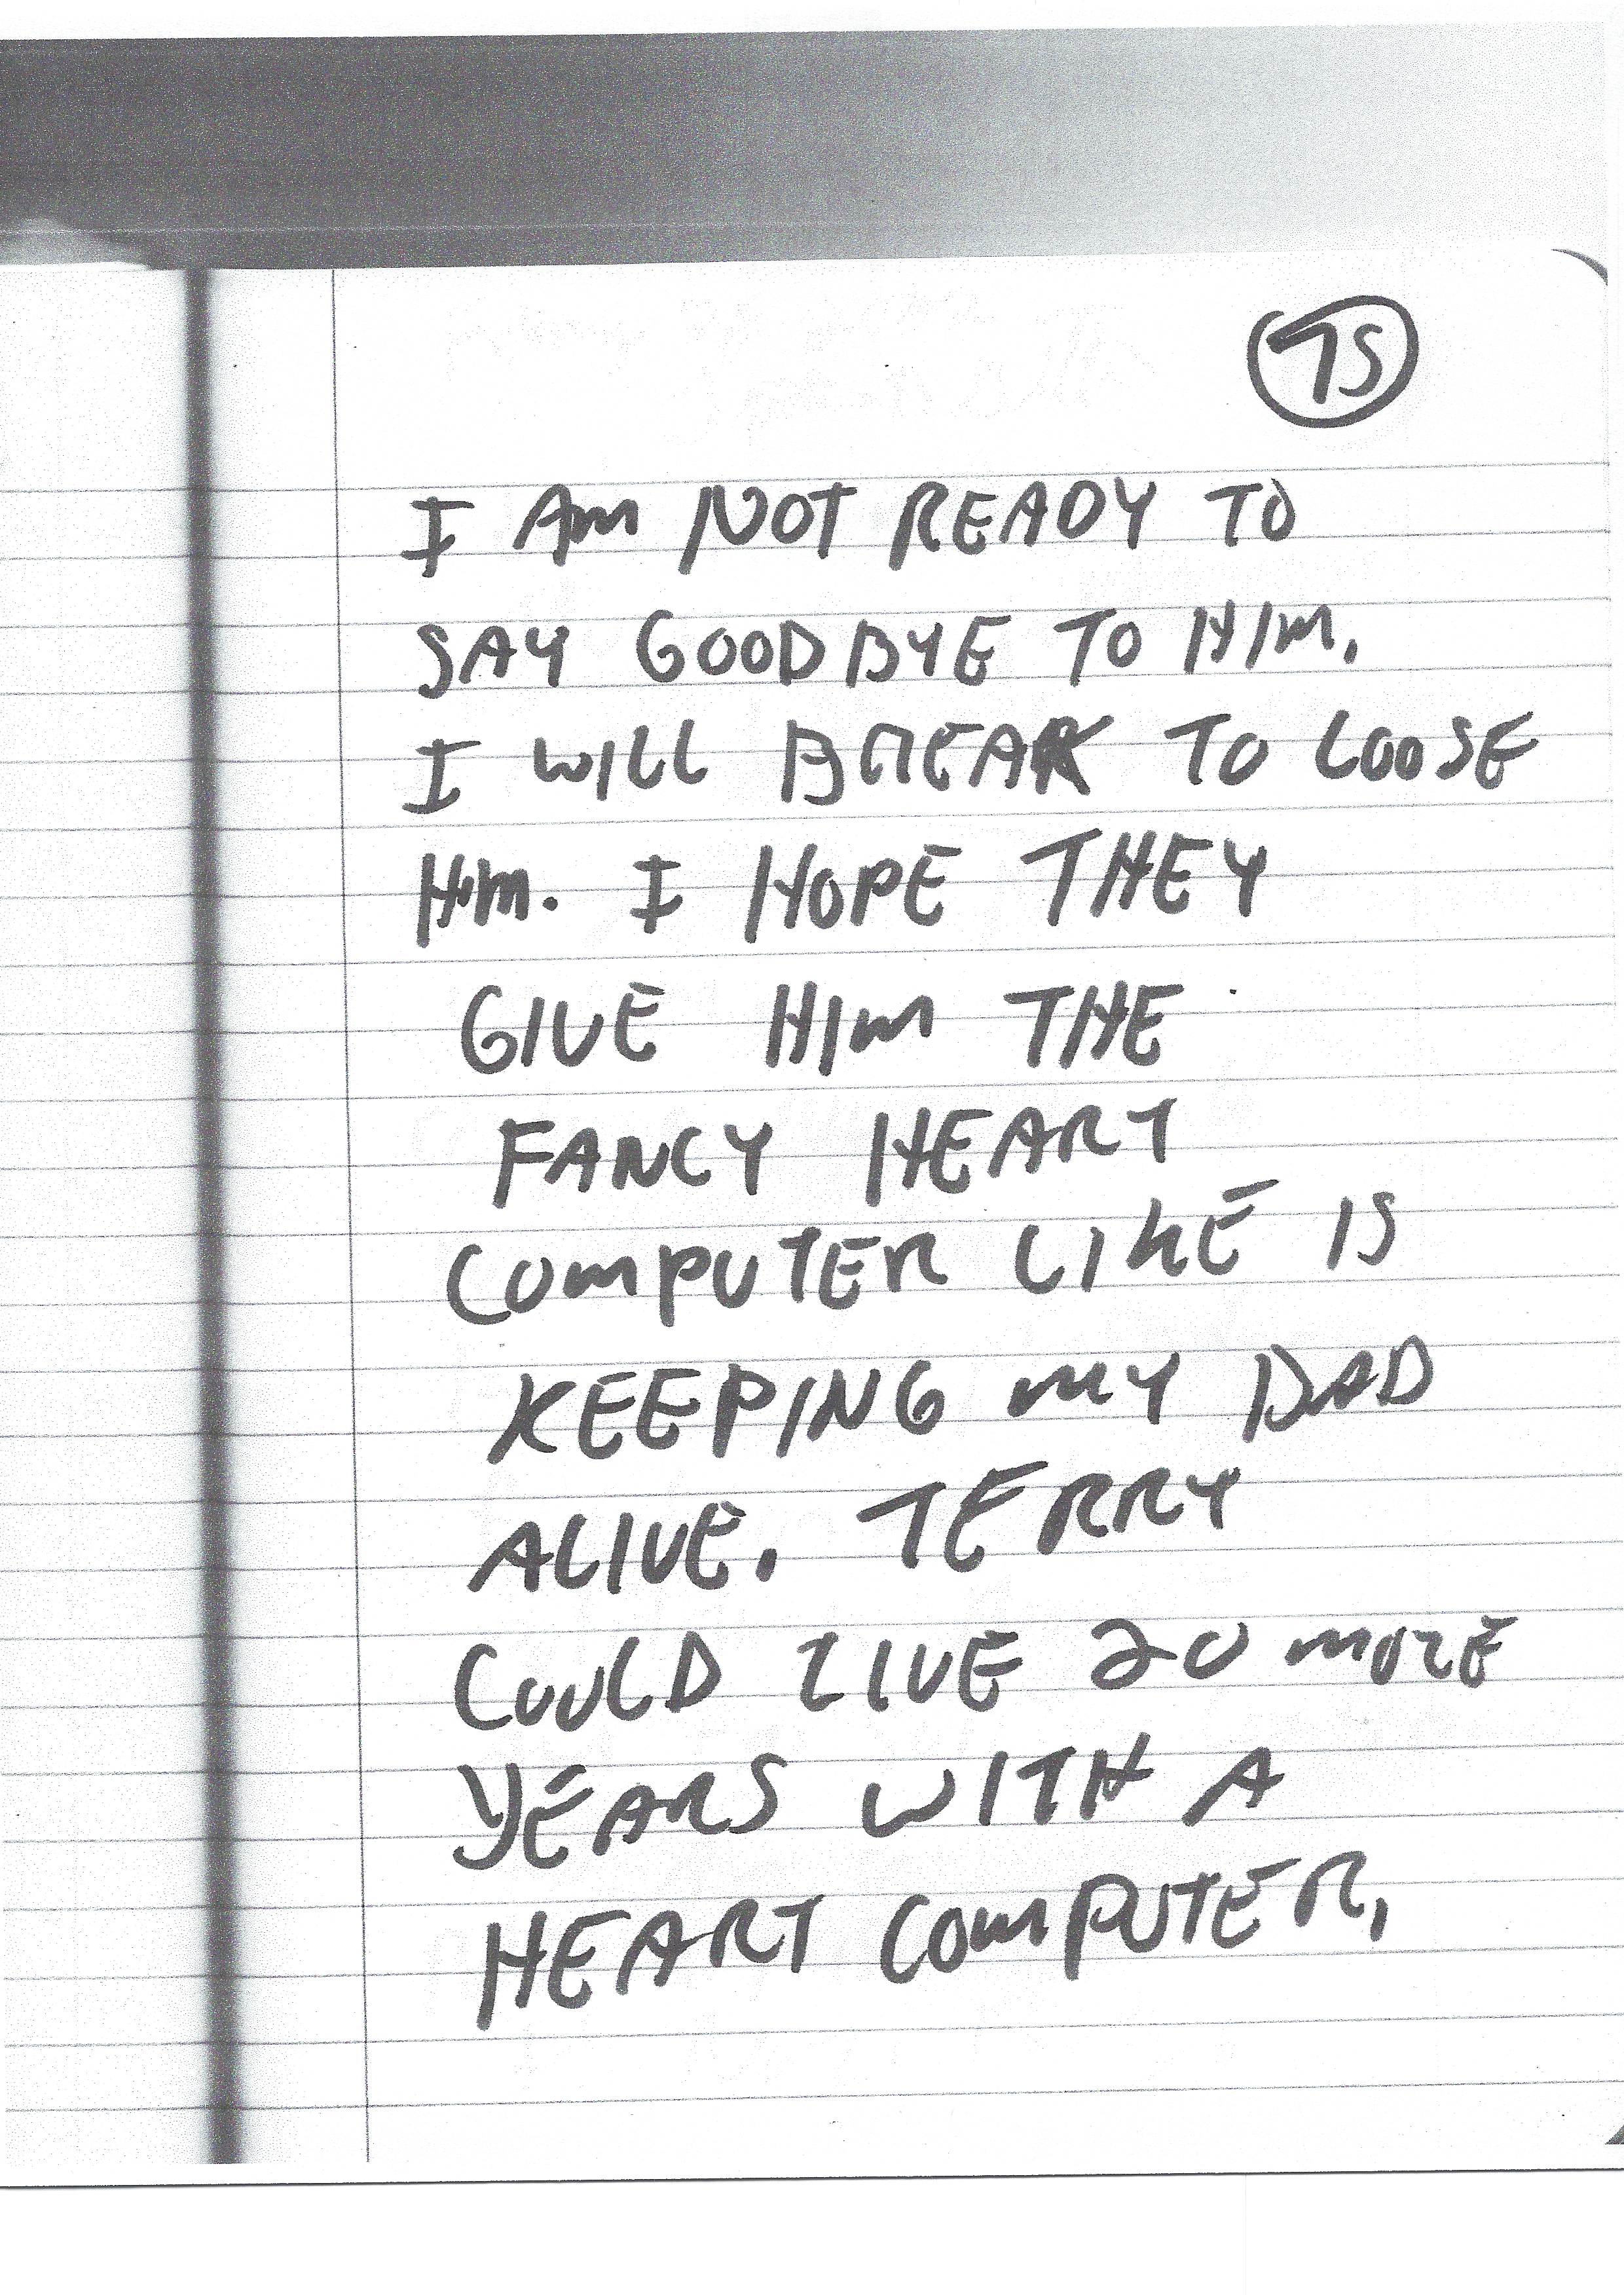 75
I AM NOT READY TO
SAY GOODBYE TO HIM.
I WILL BREAK TO LOOSE
HIM. I HOPE THEY
GIVE HIM THE
FANCY HEART
COMPUTER LIKE IS
KEEPING MY DAD
ALIVE. TERRY
COULD LIVE 20 MORE
YEARS WITH A
HEART COMPUTER,